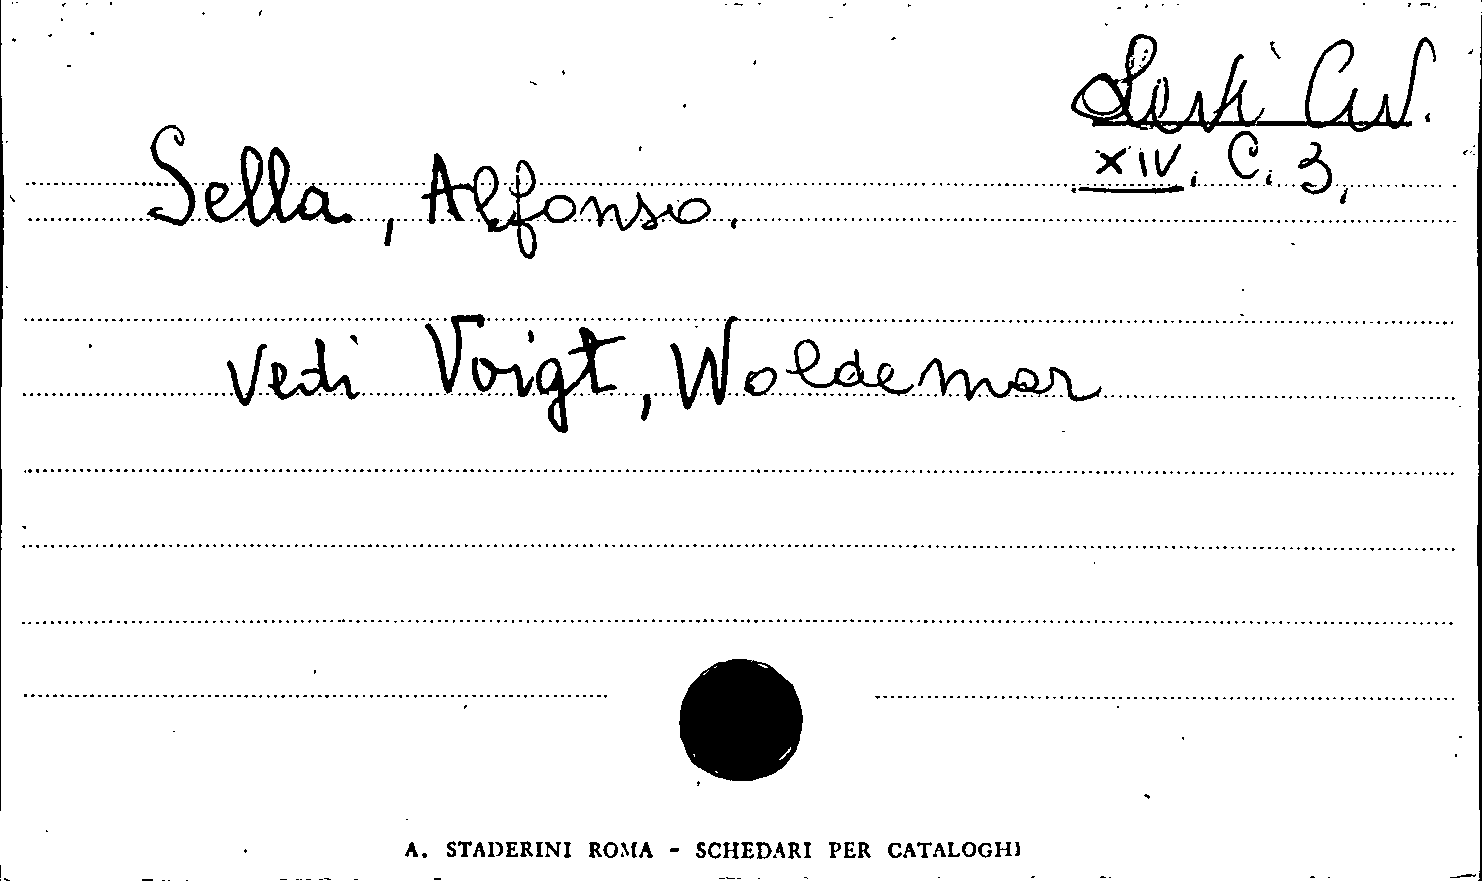 Levi Civ.
XIV. C. 3.
Sella, Alfonso.
Vedi Voigt, Woldemar
A. STADERINI ROMA - SCHEDARI PER CATALOGHI